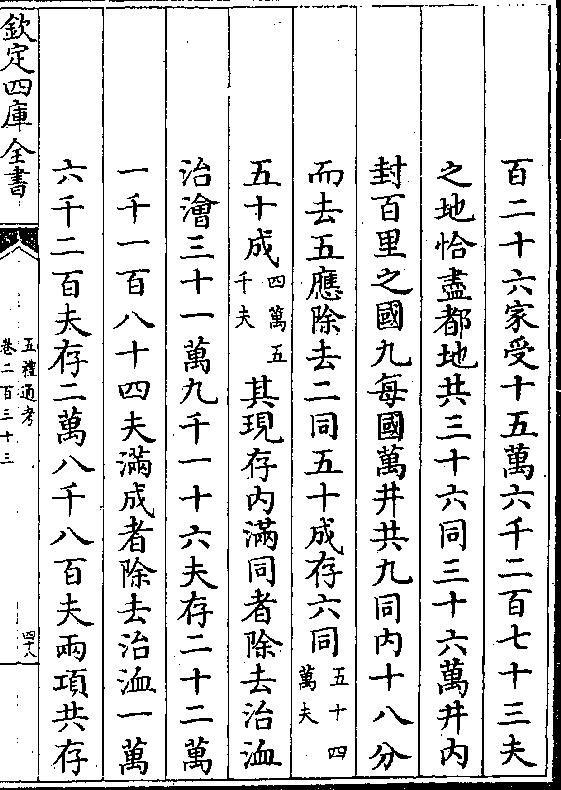 百二十六家受十五萬六千二百七十三夫
之地恰盡都地共三十六同三十六萬井内
封百里之國九每國萬井共九同内十八分
而去五應除去二同五十成存六同五十四萬夫
五十成四萬五千夫其現存内滿同者除去治洫
治澮三十一萬九千一十六夫存二十二萬
一千一百八十四夫滿成者除去治洫一萬
六千二百夫存二萬八千八百夫兩項共存
欽定四庫全書
五禮通考
卷二百三十三
四十八